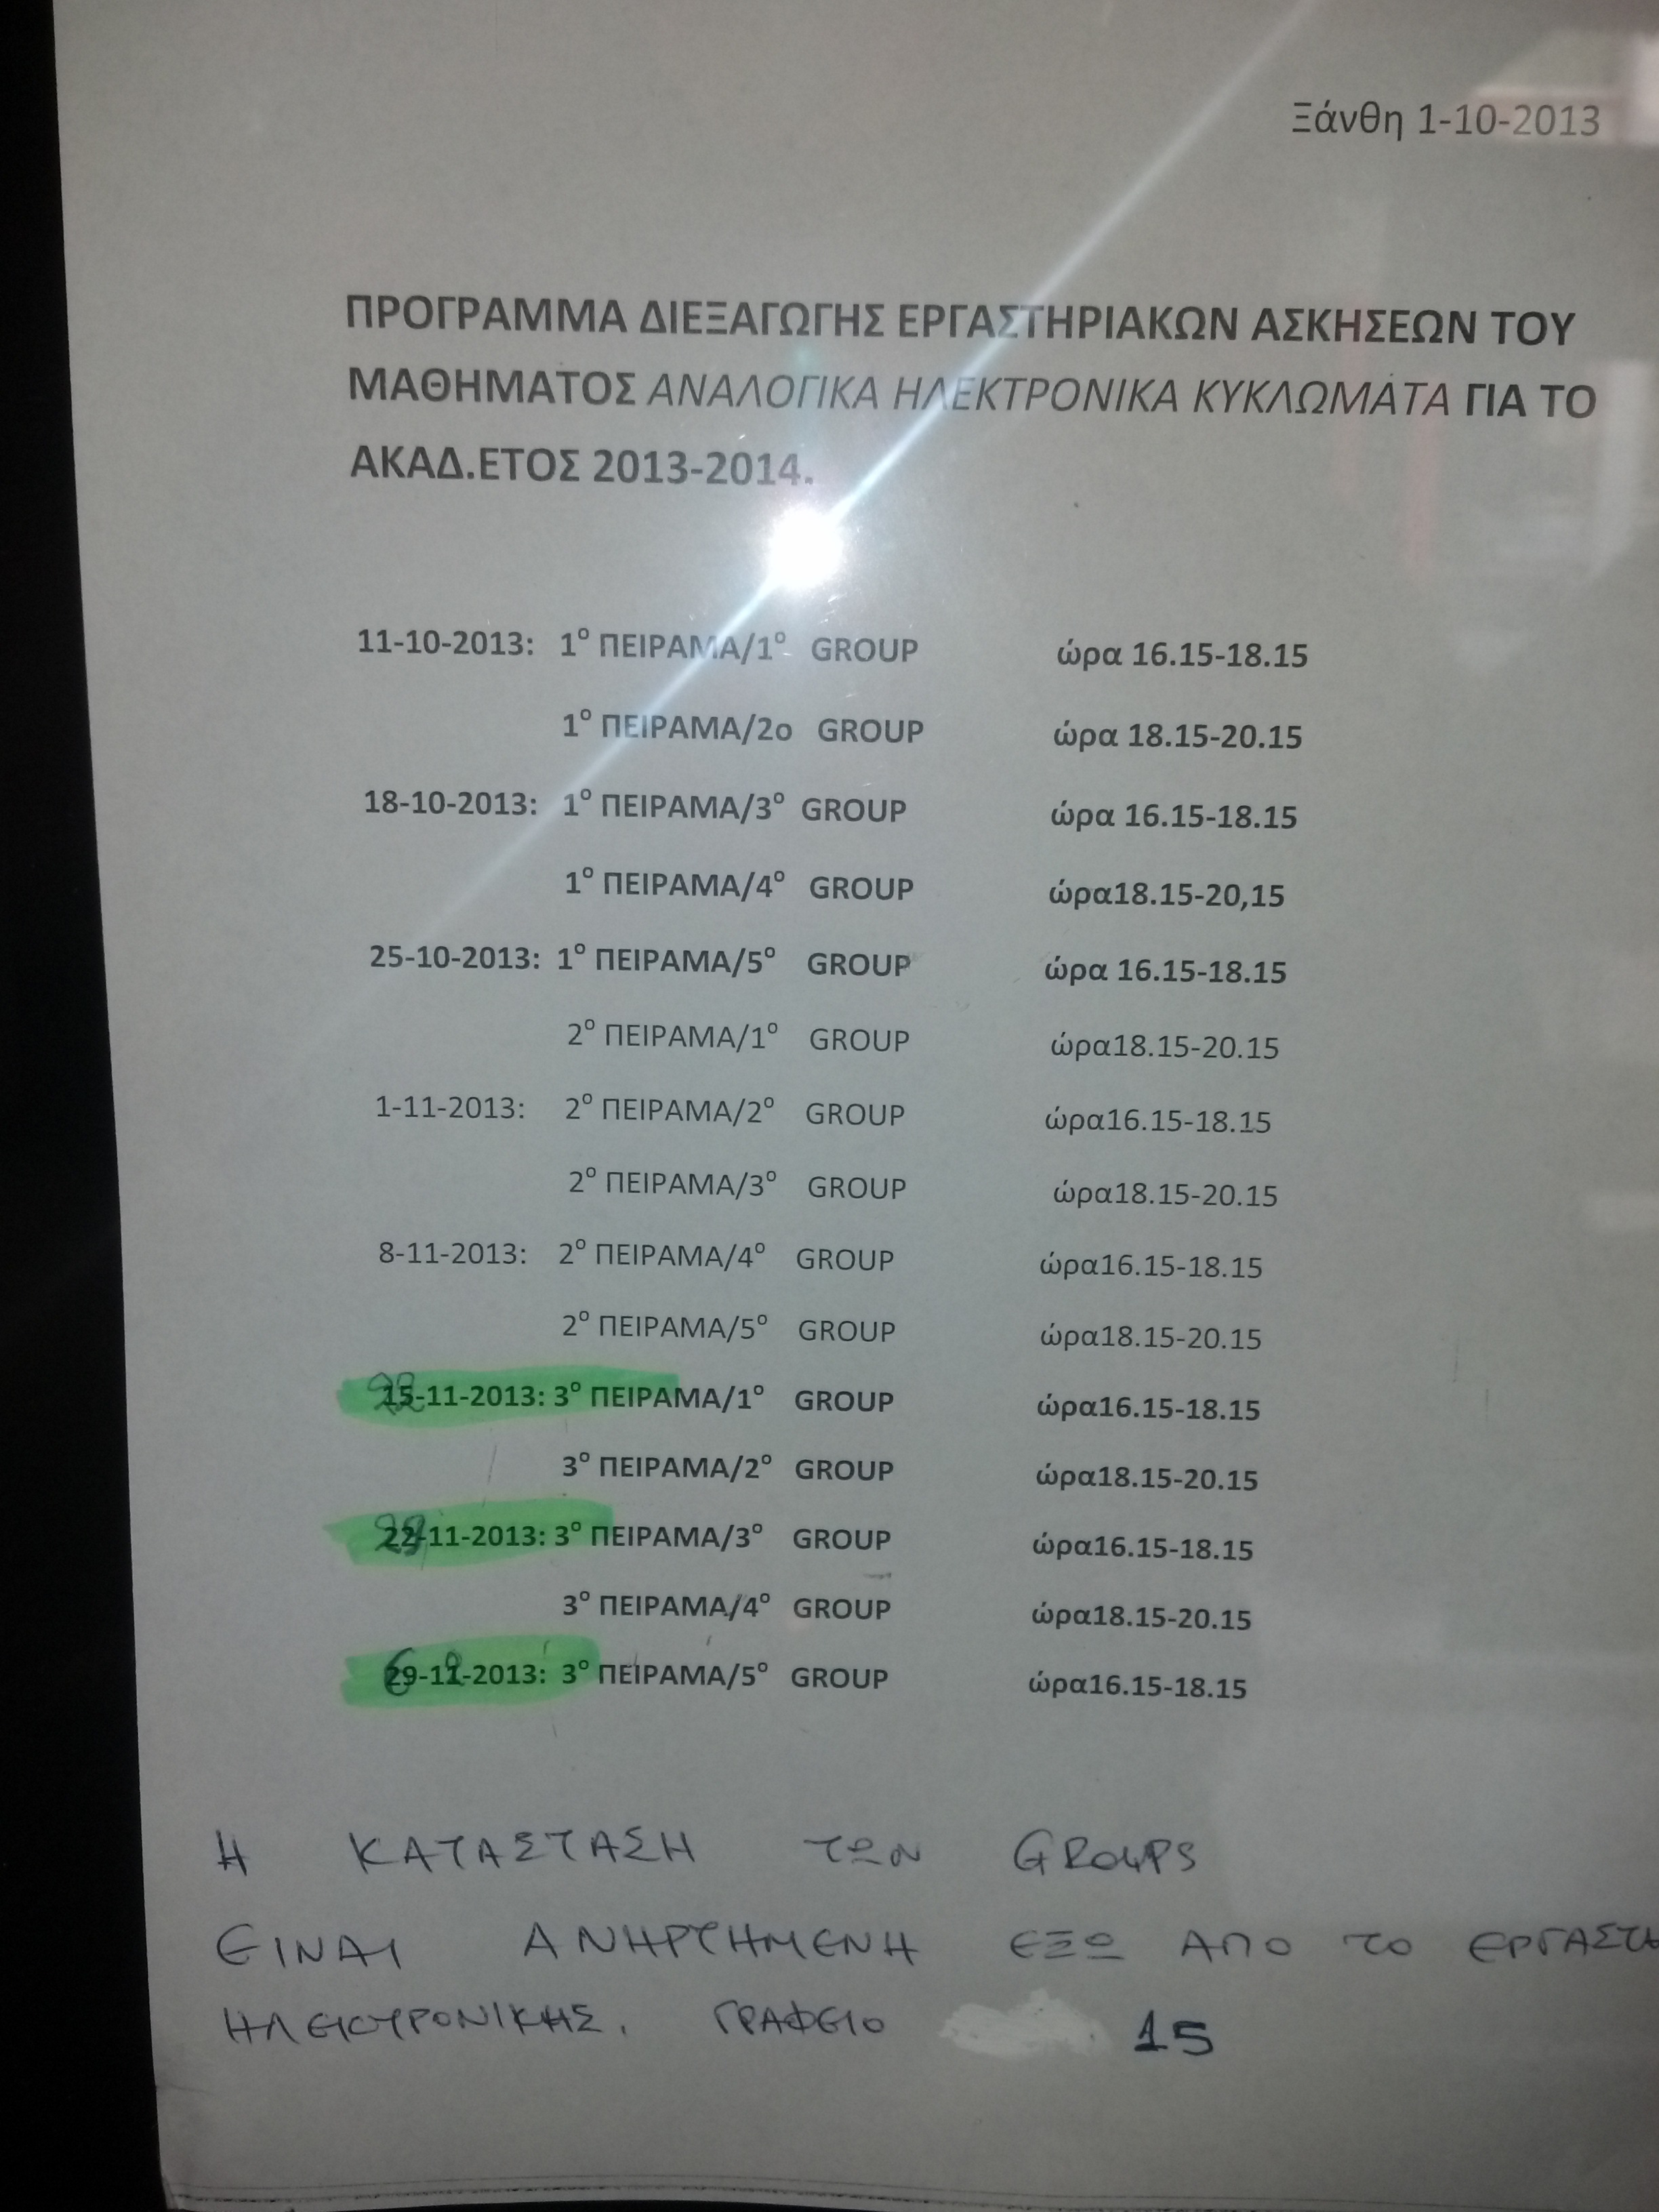 Ξάνθη 1-10-2013
ΠΡΟΓΡΑΜΜΑ ΔΙΕΞΑΓΩΓΗΣ ΕΡΓΑΣΤΗΡΙΑΚΩΝ ΑΣΚΗΣΕΩΝ ΤΟΥ
ΜΑΘΗΜΑΤΟΣ ΑΝΑΛΟΓΙΚΑ ΗΛΕΚΤΡΟΝΙΚΑ ΚΥΚΛΩΜΑΤΑ ΓΙΑ ΤΟ
ΑΚΑΔ.ΕΤΟΣ 2013-2014.
11-10-2013: 1ο ΠΕΙΡΑΜΑ/1ο GROUP ώρα 16.15-18.15
1ο ΠΕΙΡΑΜΑ/2ο GROUP ώρα 18.15-20.15
18-10-2013: 1ο ΠΕΙΡΑΜΑ/3ο GROUP ώρα 16.15-18.15
1ο ΠΕΙΡΑΜΑ/4ο GROUP ώρα18.15-20,15
25-10-2013: 1ο ΠΕΙΡΑΜΑ/5ο GROUP ώρα 16.15-18.15
2ο ΠΕΙΡΑΜΑ/1ο GROUP ώρα18.15-20.15
1-11-2013: 2ο ΠΕΙΡΑΜΑ/2ο GROUP ώρα16.15-18.15
2ο ΠΕΙΡΑΜΑ/3ο GROUP ώρα18.15-20.15
8-11-2013: 2ο ΠΕΙΡΑΜΑ/4ο GROUP ώρα16.15-18.15
2ο ΠΕΙΡΑΜΑ/5ο GROUP ώρα18.15-20.15
15-11-2013: 3ο ΠΕΙΡΑΜΑ/1ο GROUP ώρα16.15-18.15
3ο ΠΕΙΡΑΜΑ/2ο GROUP ώρα18.15-20.15
22-11-2013: 3ο ΠΕΙΡΑΜΑ/3ο GROUP ώρα16.15-18.15
3ο ΠΕΙΡΑΜΑ/4ο GROUP ώρα18.15-20.15
29-11-2013: 3ο ΠΕΙΡΑΜΑ/5ο GROUP ώρα16.15-18.15
Η ΚΑΤΑΣΤΑΣΗ ΤΩΝ GROUPS
ΕΙΝΑΙ ΑΝΗΡΤΗΜΕΝΗ ΕΞΩ ΑΠΟ ΤΟ ΕΡΓΑΣΤΗ
ΗΛΕΚΤΡΟΝΙΚΗΣ. ΓΡΑΦΕΙΟ 15